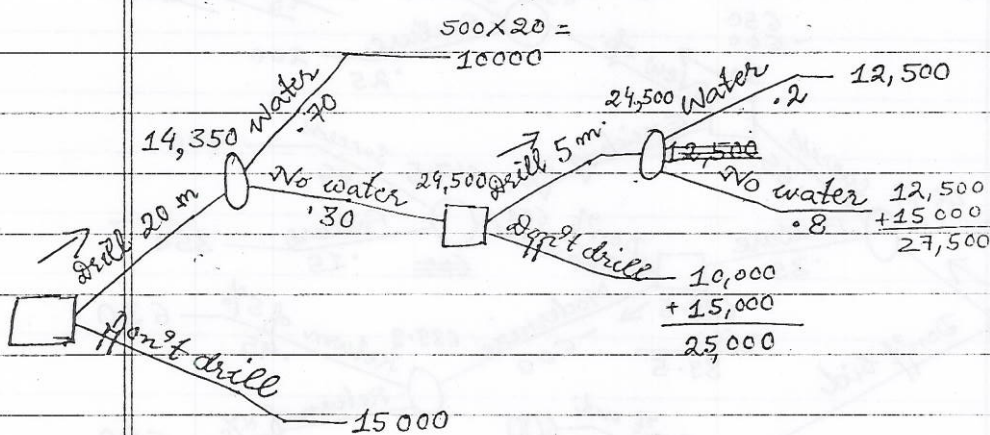 500×20 =
10000
Water
.70
14,350
Drill 20 m
No water
.30
24,500
Drill 5 m.
24,500
Water
.2
12,500
12,500
No water
.8
12,500
+15000
27,500
Don't drill
10,000
+ 15,000
25,000
Don't drill
15000